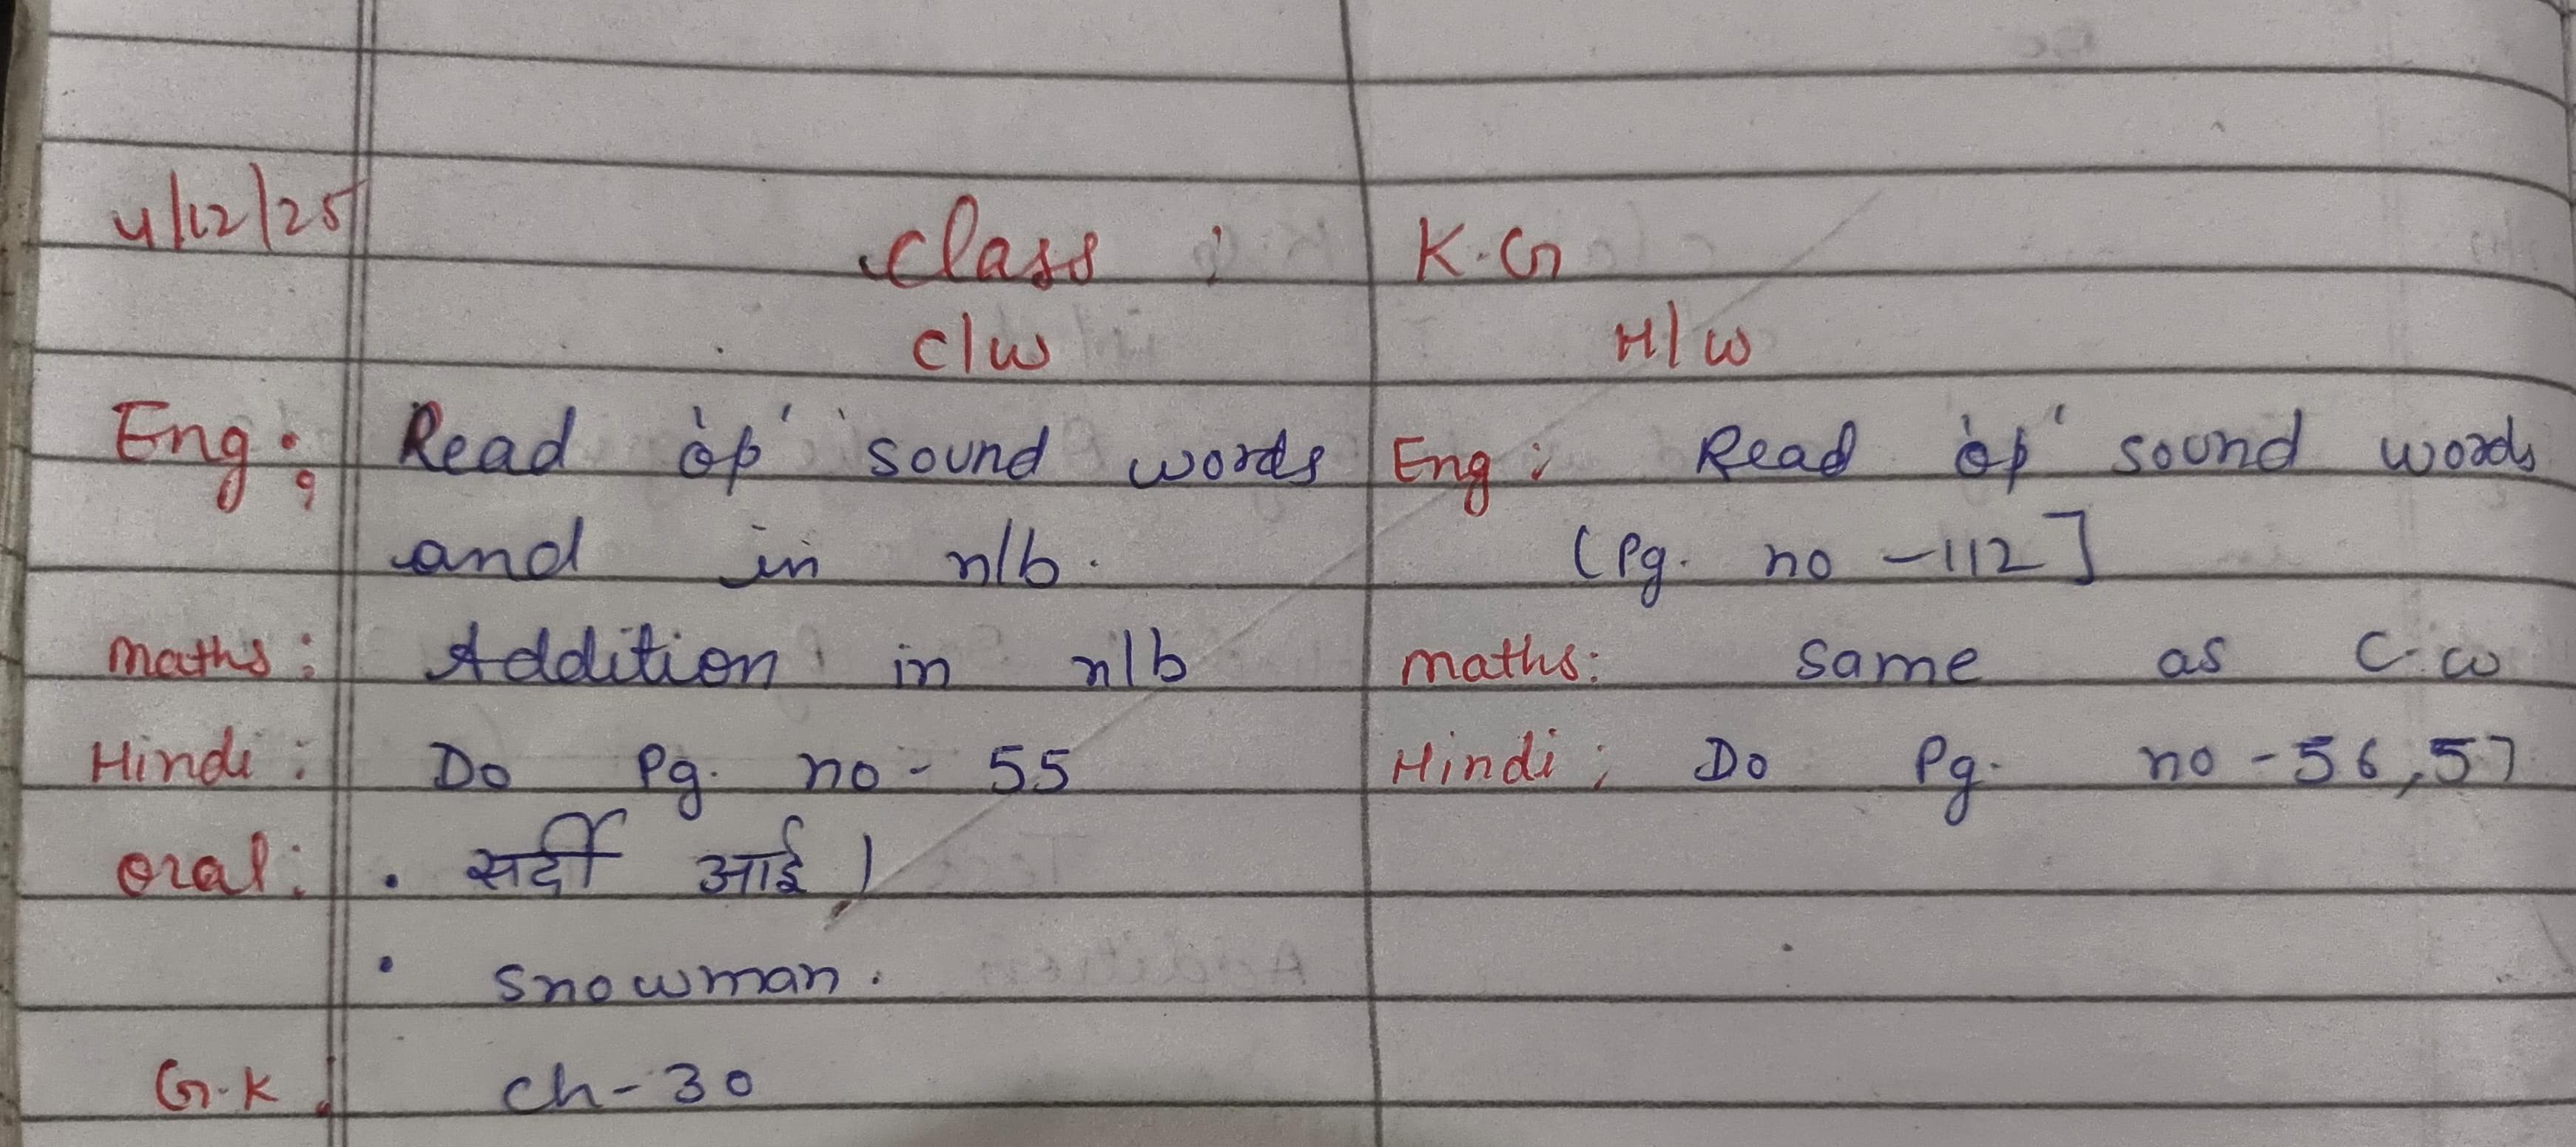 4/12/25 class : K.G
C/W H/W
Eng : Read 'op' sound words Eng : Read 'op' sound words
and in n/b. (Pg. no - 112]
maths : Addition in n/b maths: same as C.w
Hindi : Do Pg. no - 55 Hindi : Do Pg. no - 56,57
oral : • सर्दी आई।
• snowman.
G.K : ch - 30